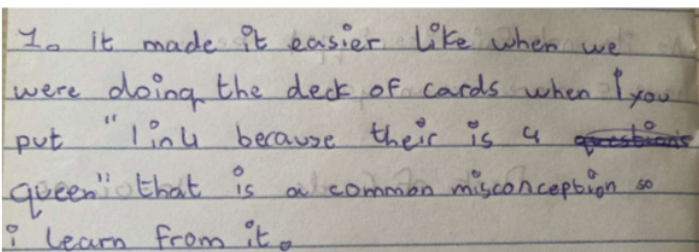 1. it made it easier like when we
were doing the deck of cards when I you
put "1 in 4 because their is 4 questions
queen" that is a common misconception so
i learn from it.